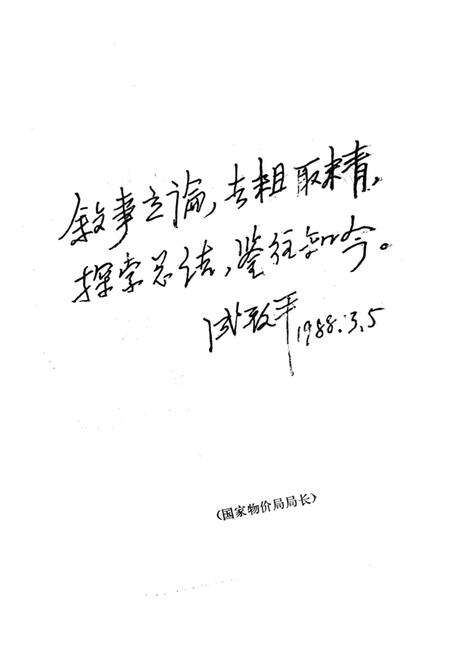 叙事立论,去粗取精,
探索总结,鉴往知今。
成致平 1988.3.5
(国家物价局局长)